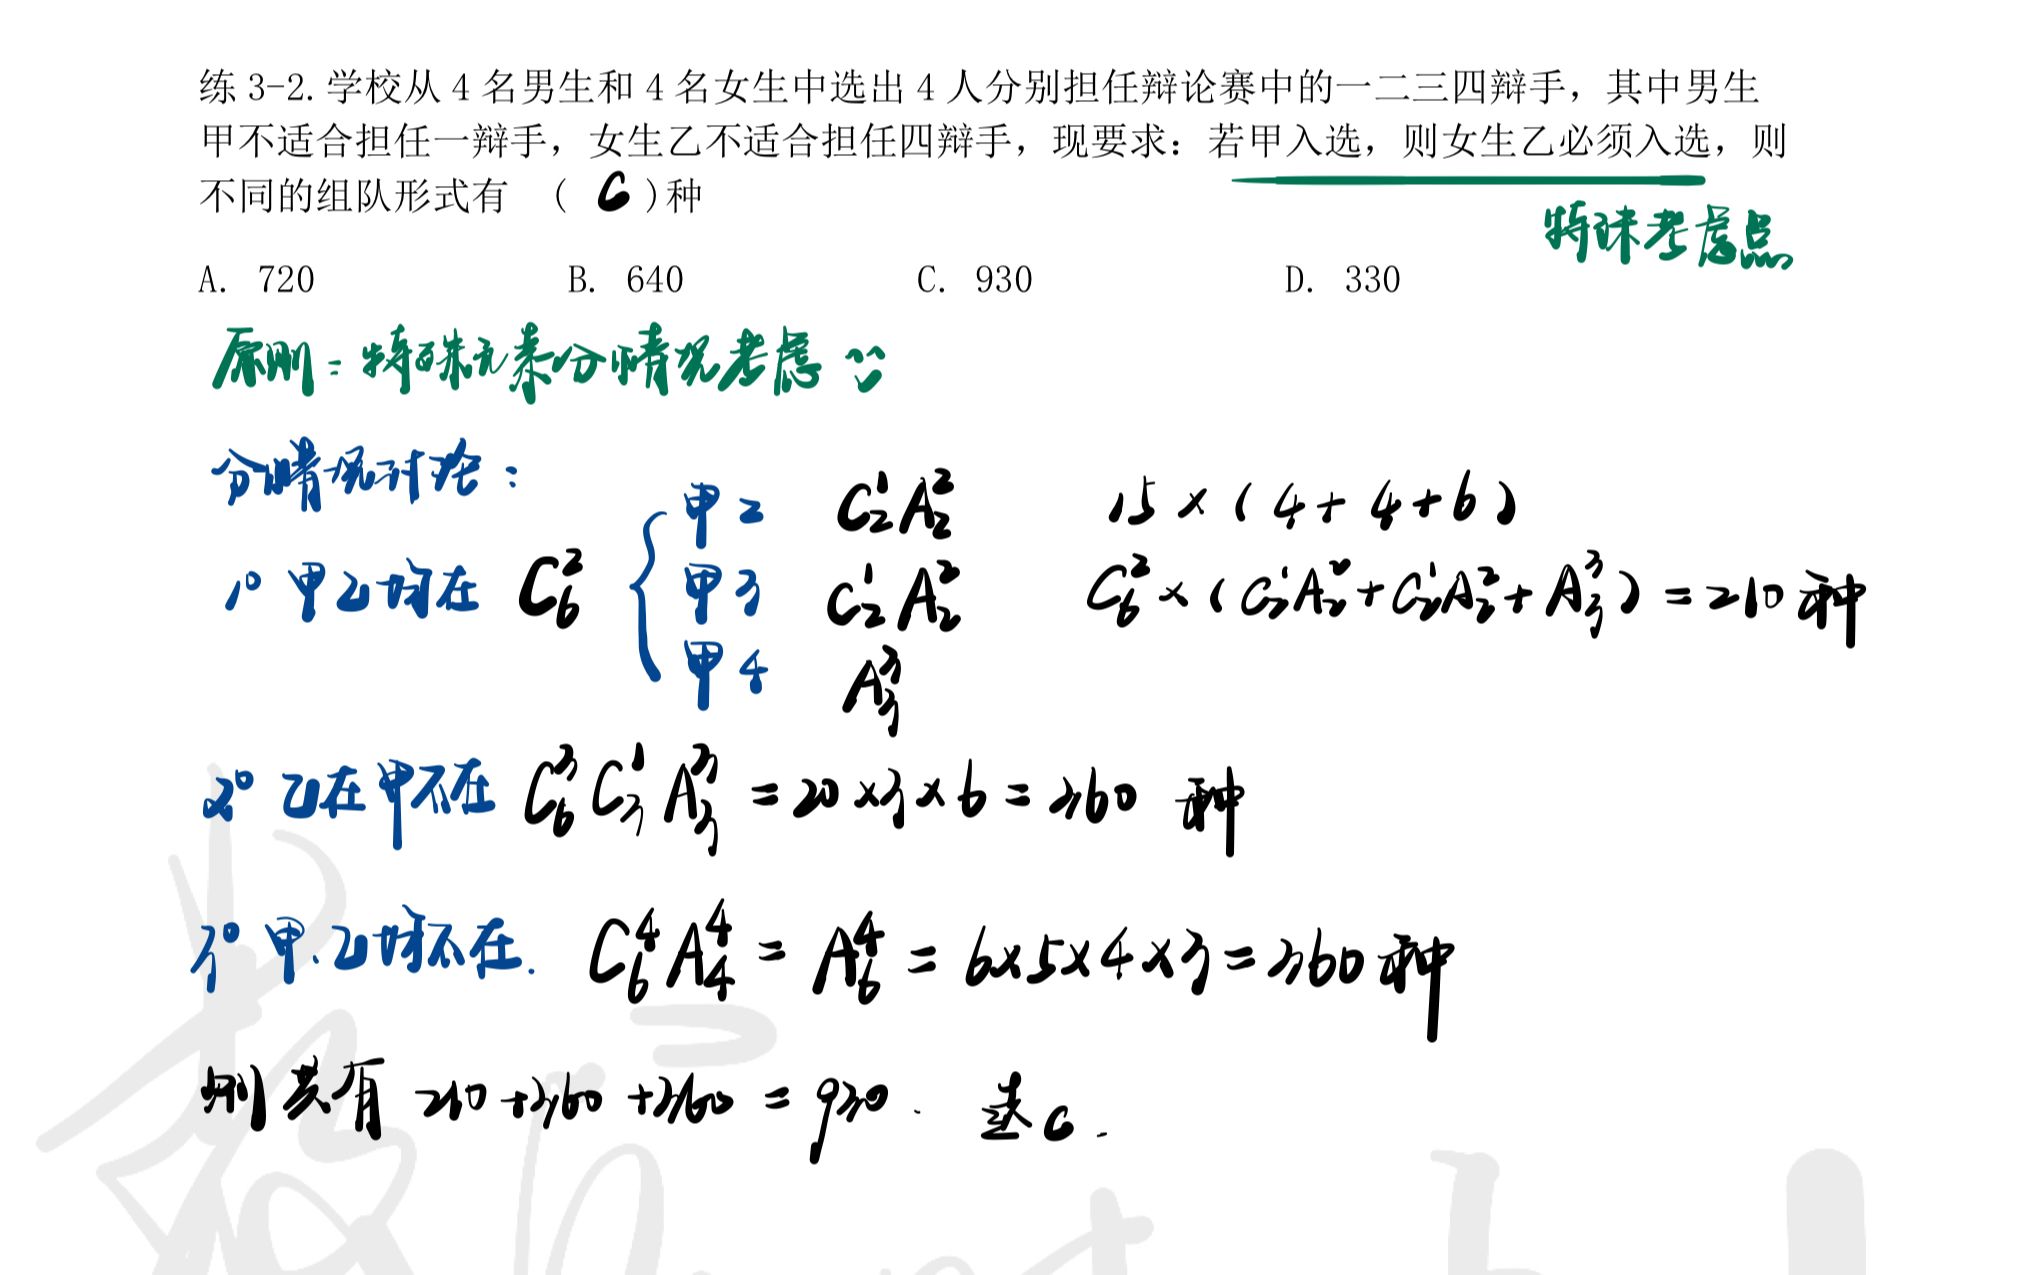 练 3-2. 学校从 4 名男生和 4 名女生中选出 4 人分别担任辩论赛中的一二三四辩手，其中男生
甲不适合担任一辩手，女生乙不适合担任四辩手，现要求：若甲入选，则女生乙必须入选，则
不同的组队形式有 （ C ）种
特殊考虑点
A. 720 B. 640 C. 930 D. 330
原则：特殊元素分情况考虑
分情况讨论：
甲2 C₂¹A₂² 15×(4+4+6)
1° 甲乙均在 C₆² { 甲3 C₂¹A₂² C₆²×(C₂¹A₂²+C₂¹A₂²+A₃³)=210种
甲4 A₃³
2° 乙在甲不在 C₆³C₃¹A₃³=20×3×6=360 种
3° 甲、乙均不在. C₆⁴A₄⁴=A₆⁴=6×5×4×3=360种
则共有 210+360+360=930. 选C.